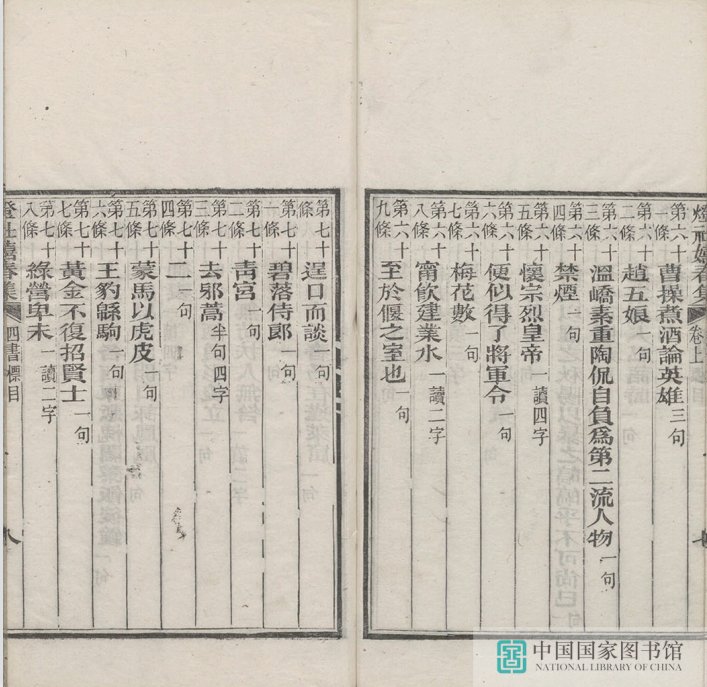 燈社嬉春集 卷上
第六十一條 曹操煮酒論英雄 三句
第六十二條 趙五娘 一句
第六十三條 溫嶠素重陶侃自負爲第二流人物 一句
第六十四條 禁煙 一句
第六十五條 懷宗烈皇帝 一讀四字
第六十六條 便似得了將軍令 一句
第六十七條 梅花數 一句
第六十八條 甯飲建業水 一讀二字
第六十九條 至於偃之室也 一句
第七十條 逞口而談 一句
第七十一條 碧落侍郎 一句
第七十二條 靑宮 一句
第七十三條 去邪蒿 半句四字
第七十四條 二 一句
第七十五條 蒙馬以虎皮 一句
第七十六條 王豹緜駒 一句
第七十七條 黃金不復招賢士 一句
第七十八條 綠營卑末 一讀二字
燈社嬉春集 四書標目 八
中国国家图书馆
NATIONAL LIBRARY OF CHINA